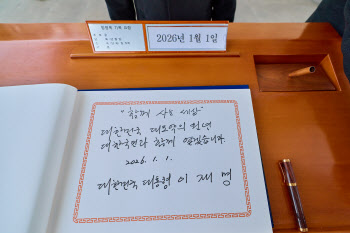 2026년 1월 1일
"함께 사는 세상"
대한민국 대도약의 원년
대한국민과 함께 열겠습니다.
2026. 1. 1.
대한민국 대통령 이재명